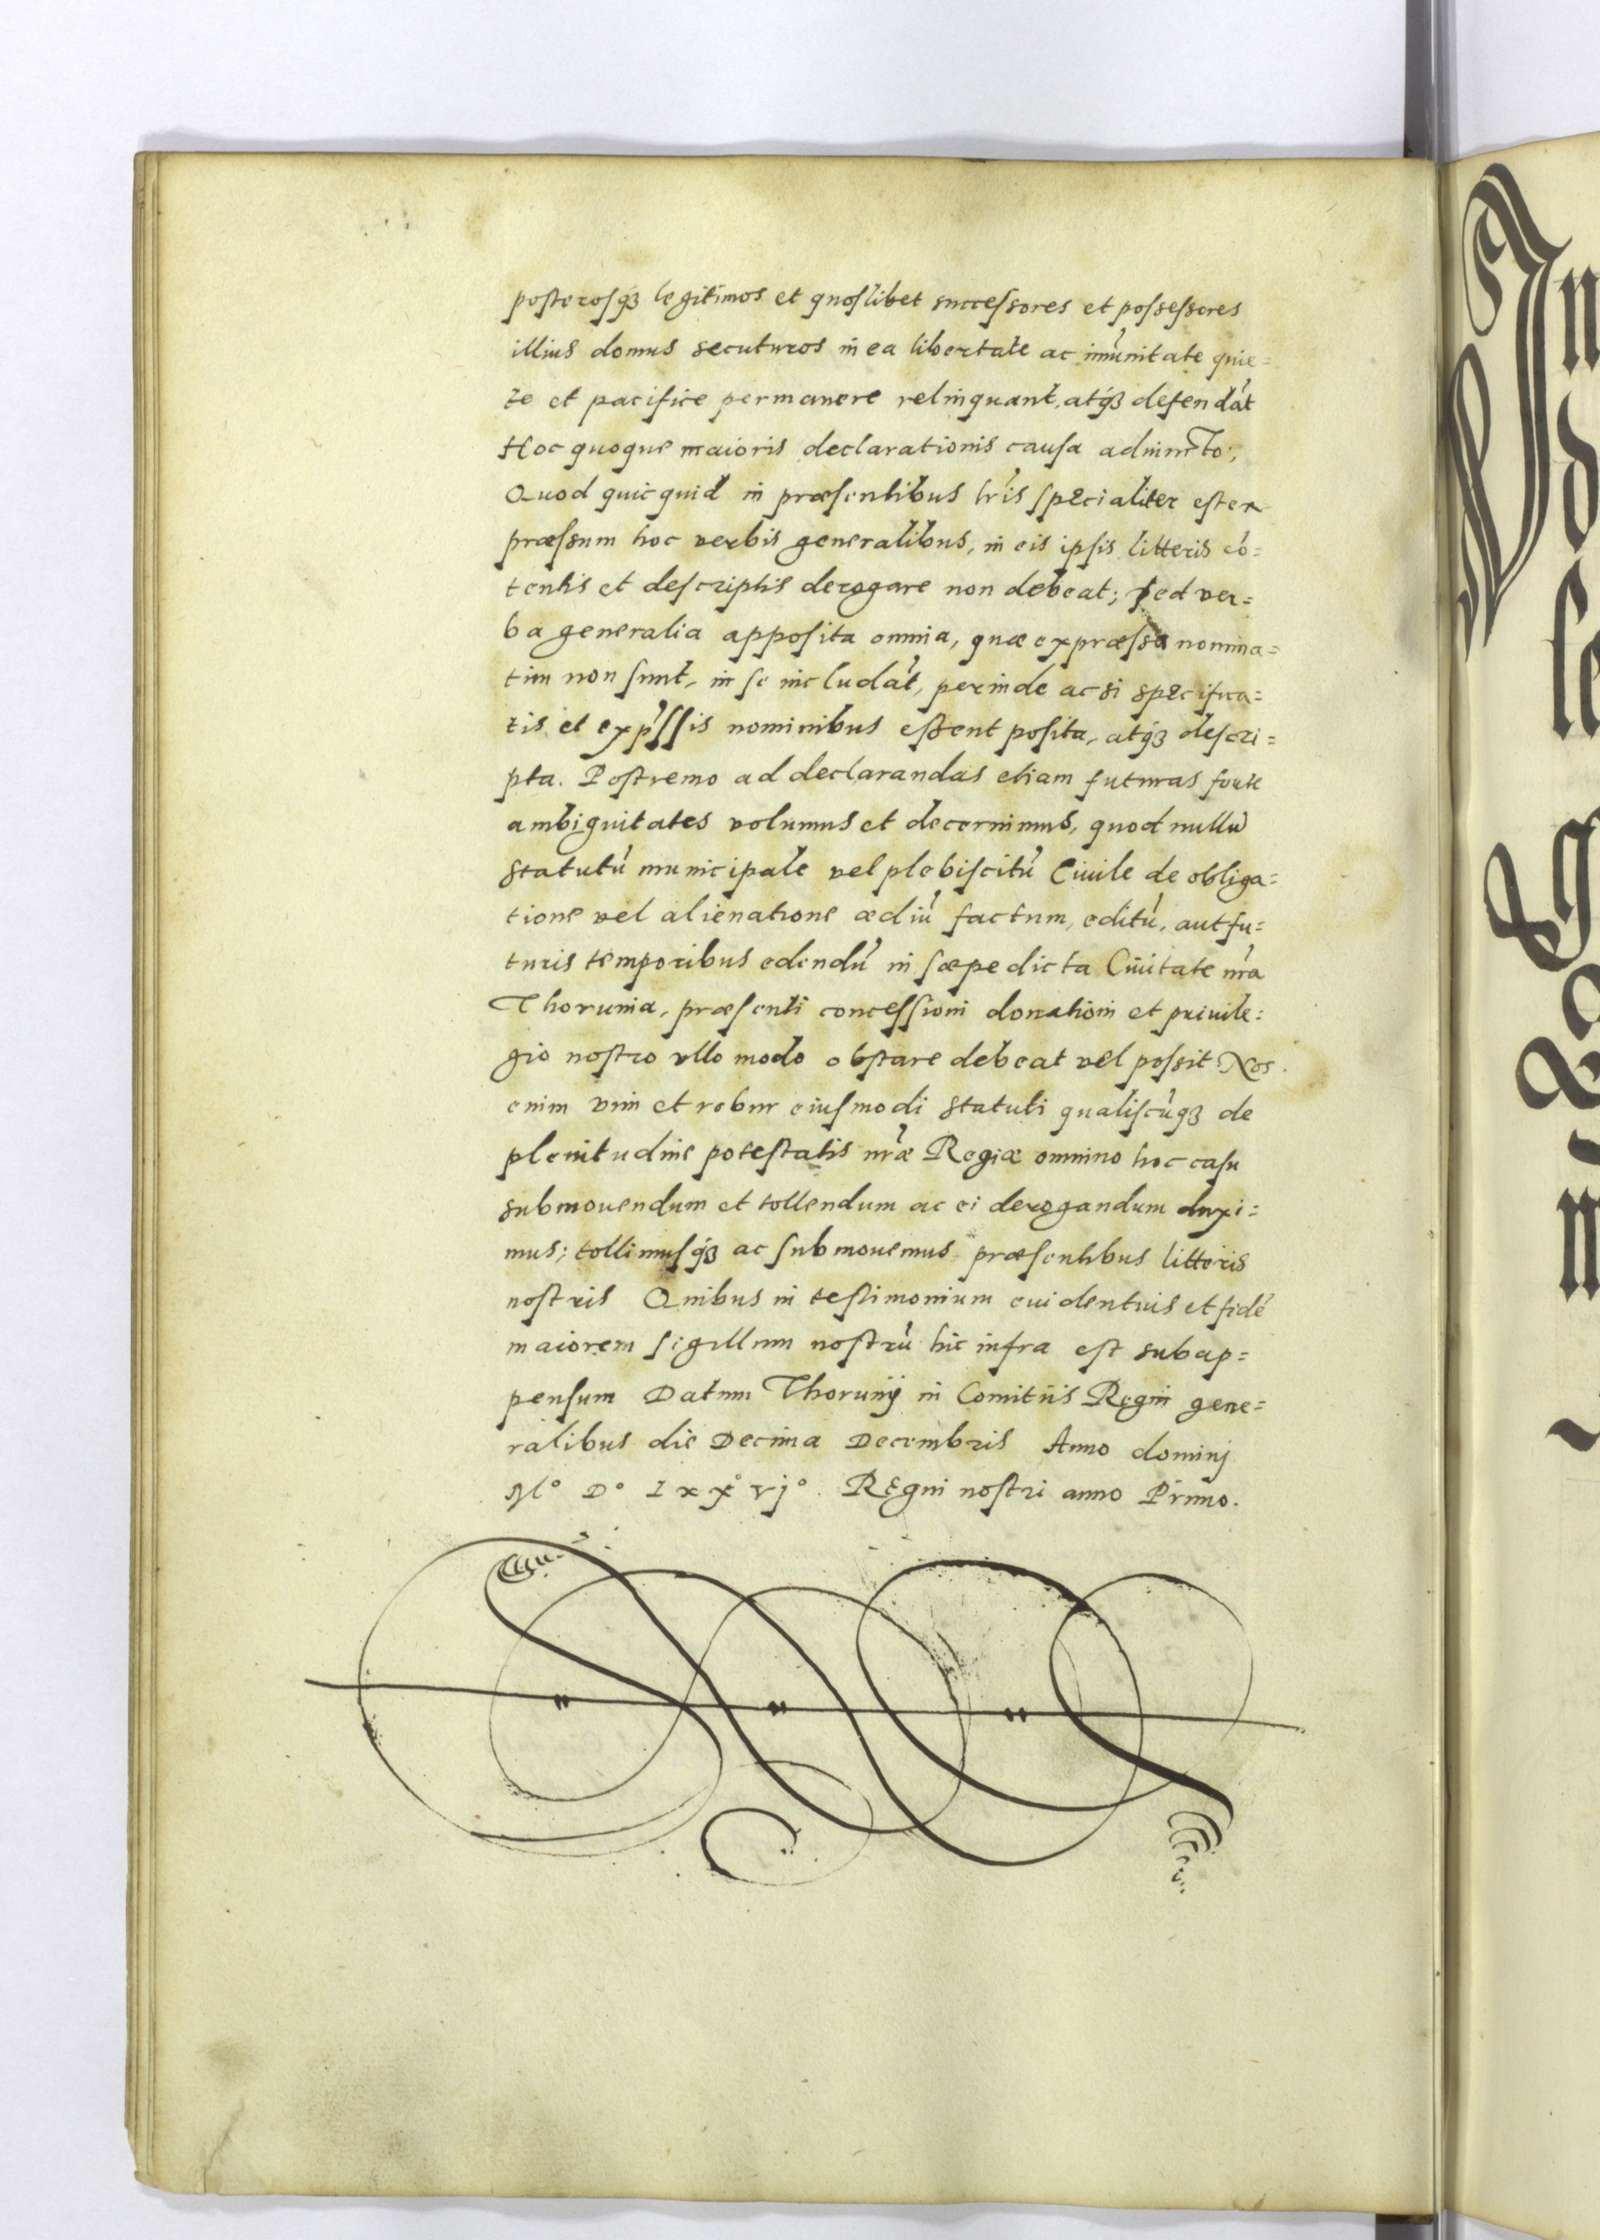 posterosq́ꝫ legitimos et quoslibet successores et possessores
illius domus secuturos in ea libertate ac im̃unitate quie=
te et pacifice permanere relinquant, atq́ꝫ defendãt
Hoc quoque maioris declarationis causa adiuncto,
Quod quicquid in præsentibus lr̃is specialiter est ex
præssum hoc verbis generalibus, in eis ipsis litteris cõ=
tentis et descriptis derogare non debeat; sed ver=
ba generalia apposita omnia, quæ expræssa nomina=
tim non sunt, in se includãt, perinde ac si specifica=
tis et exp̃ssis nominibus essent posita, atq́ꝫ descri=
pta. Postremo ad declarandas etiam futuras forte
ambiguitates volumus et decernimus, quod nullũ
statutũ municipale vel plebiscitũ Ciuile de obliga=
tione vel alienatione ædiũ factum, editũ, aut fu=
turis temporibus edendũ in sæpe dicta Ciuitate nr̃a
Thorunia, præsenti concessioni donationi et priuile=
gio nostro vllo modo obstare debeat vel possit. Nos
enim vim et robur eiusmodi statuti qualiscũqꝫ de
plenitudine potestatis nr̃æ Regiæ omnino hoc casu
submouendum et tollendum ac ei derogandum duxi=
mus; tollimusq́ꝫ ac submouemus præsentibus litteris
nostris Quibus in testimonium euidentius et fidẽ
maiorem sigillum nostrũ hic infra est subap=
pensum Datum Thorunij in Comitiis Regni gene=
ralibus die Decima Decembris Anno dominj
M° D° Lxx° vj°. Regni nostri anno Primo.